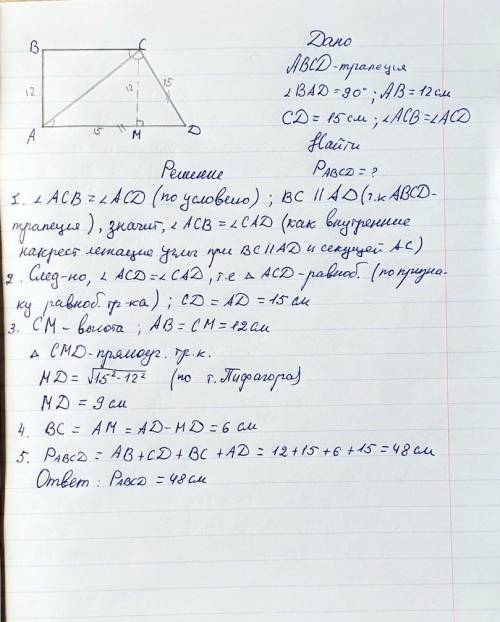 Дано
ABCD-трапеция
∠BAD = 90°; AB = 12 см
CD = 15 см; ∠ACB = ∠ACD
Найти
PABCD = ?
B
C
12
12
15
A
15
M
D
Решение
1. ∠ACB = ∠ACD (по условию); BC ∥ AD (т.к ABCD-
трапеция), значит, ∠ACB = ∠CAD (как внутренние
накрест лежащие углы при BC ∥ AD и секущей AC)
2. След-но, ∠ACD = ∠CAD, т.е △ ACD-равноб. (по призна-
ку равноб. тр-ка); CD = AD = 15 см
3. CM - высота; AB = CM = 12 см
△ CMD-прямоуг. тр.к.
MD = √15²-12² (по т. Пифагора)
MD = 9 см
4. BC = AM = AD - MD = 6 см
5. PABCD = AB + CD + BC + AD = 12 + 15 + 6 + 15 = 48 см
Ответ: PABCD = 48 см